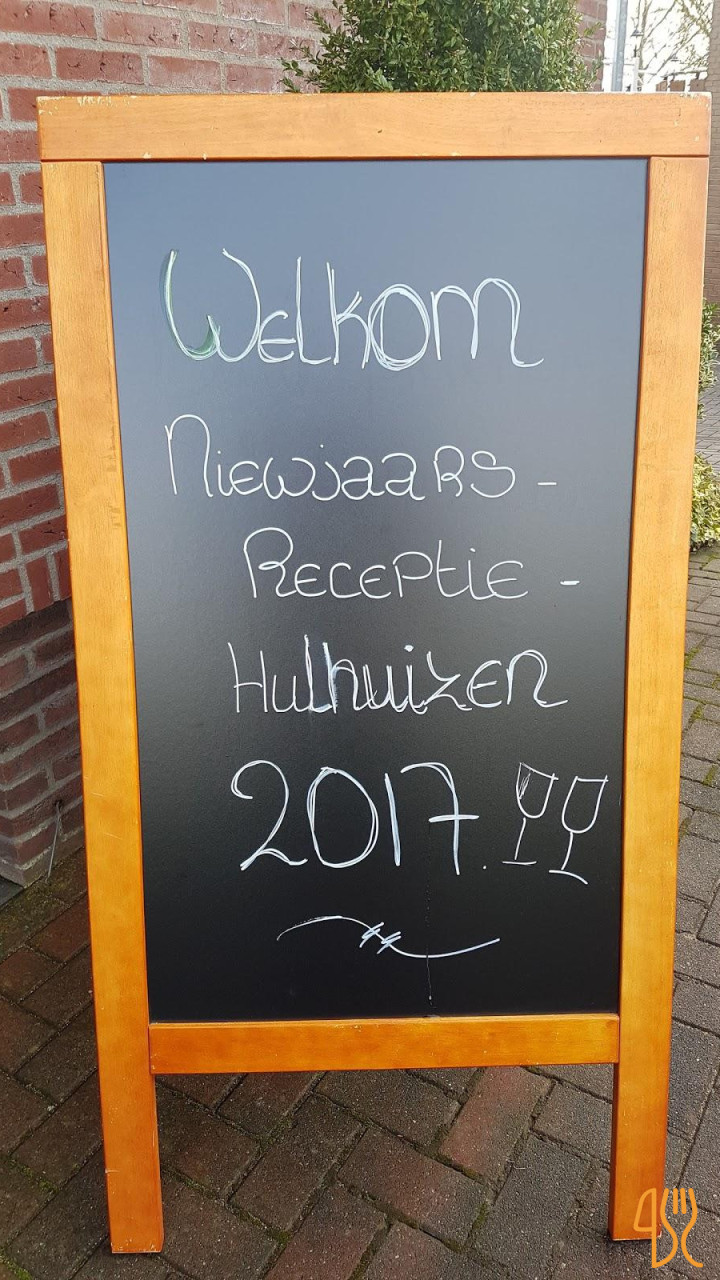 Welkom
Niewjaars -
Receptie -
Hulhuizen
2017.